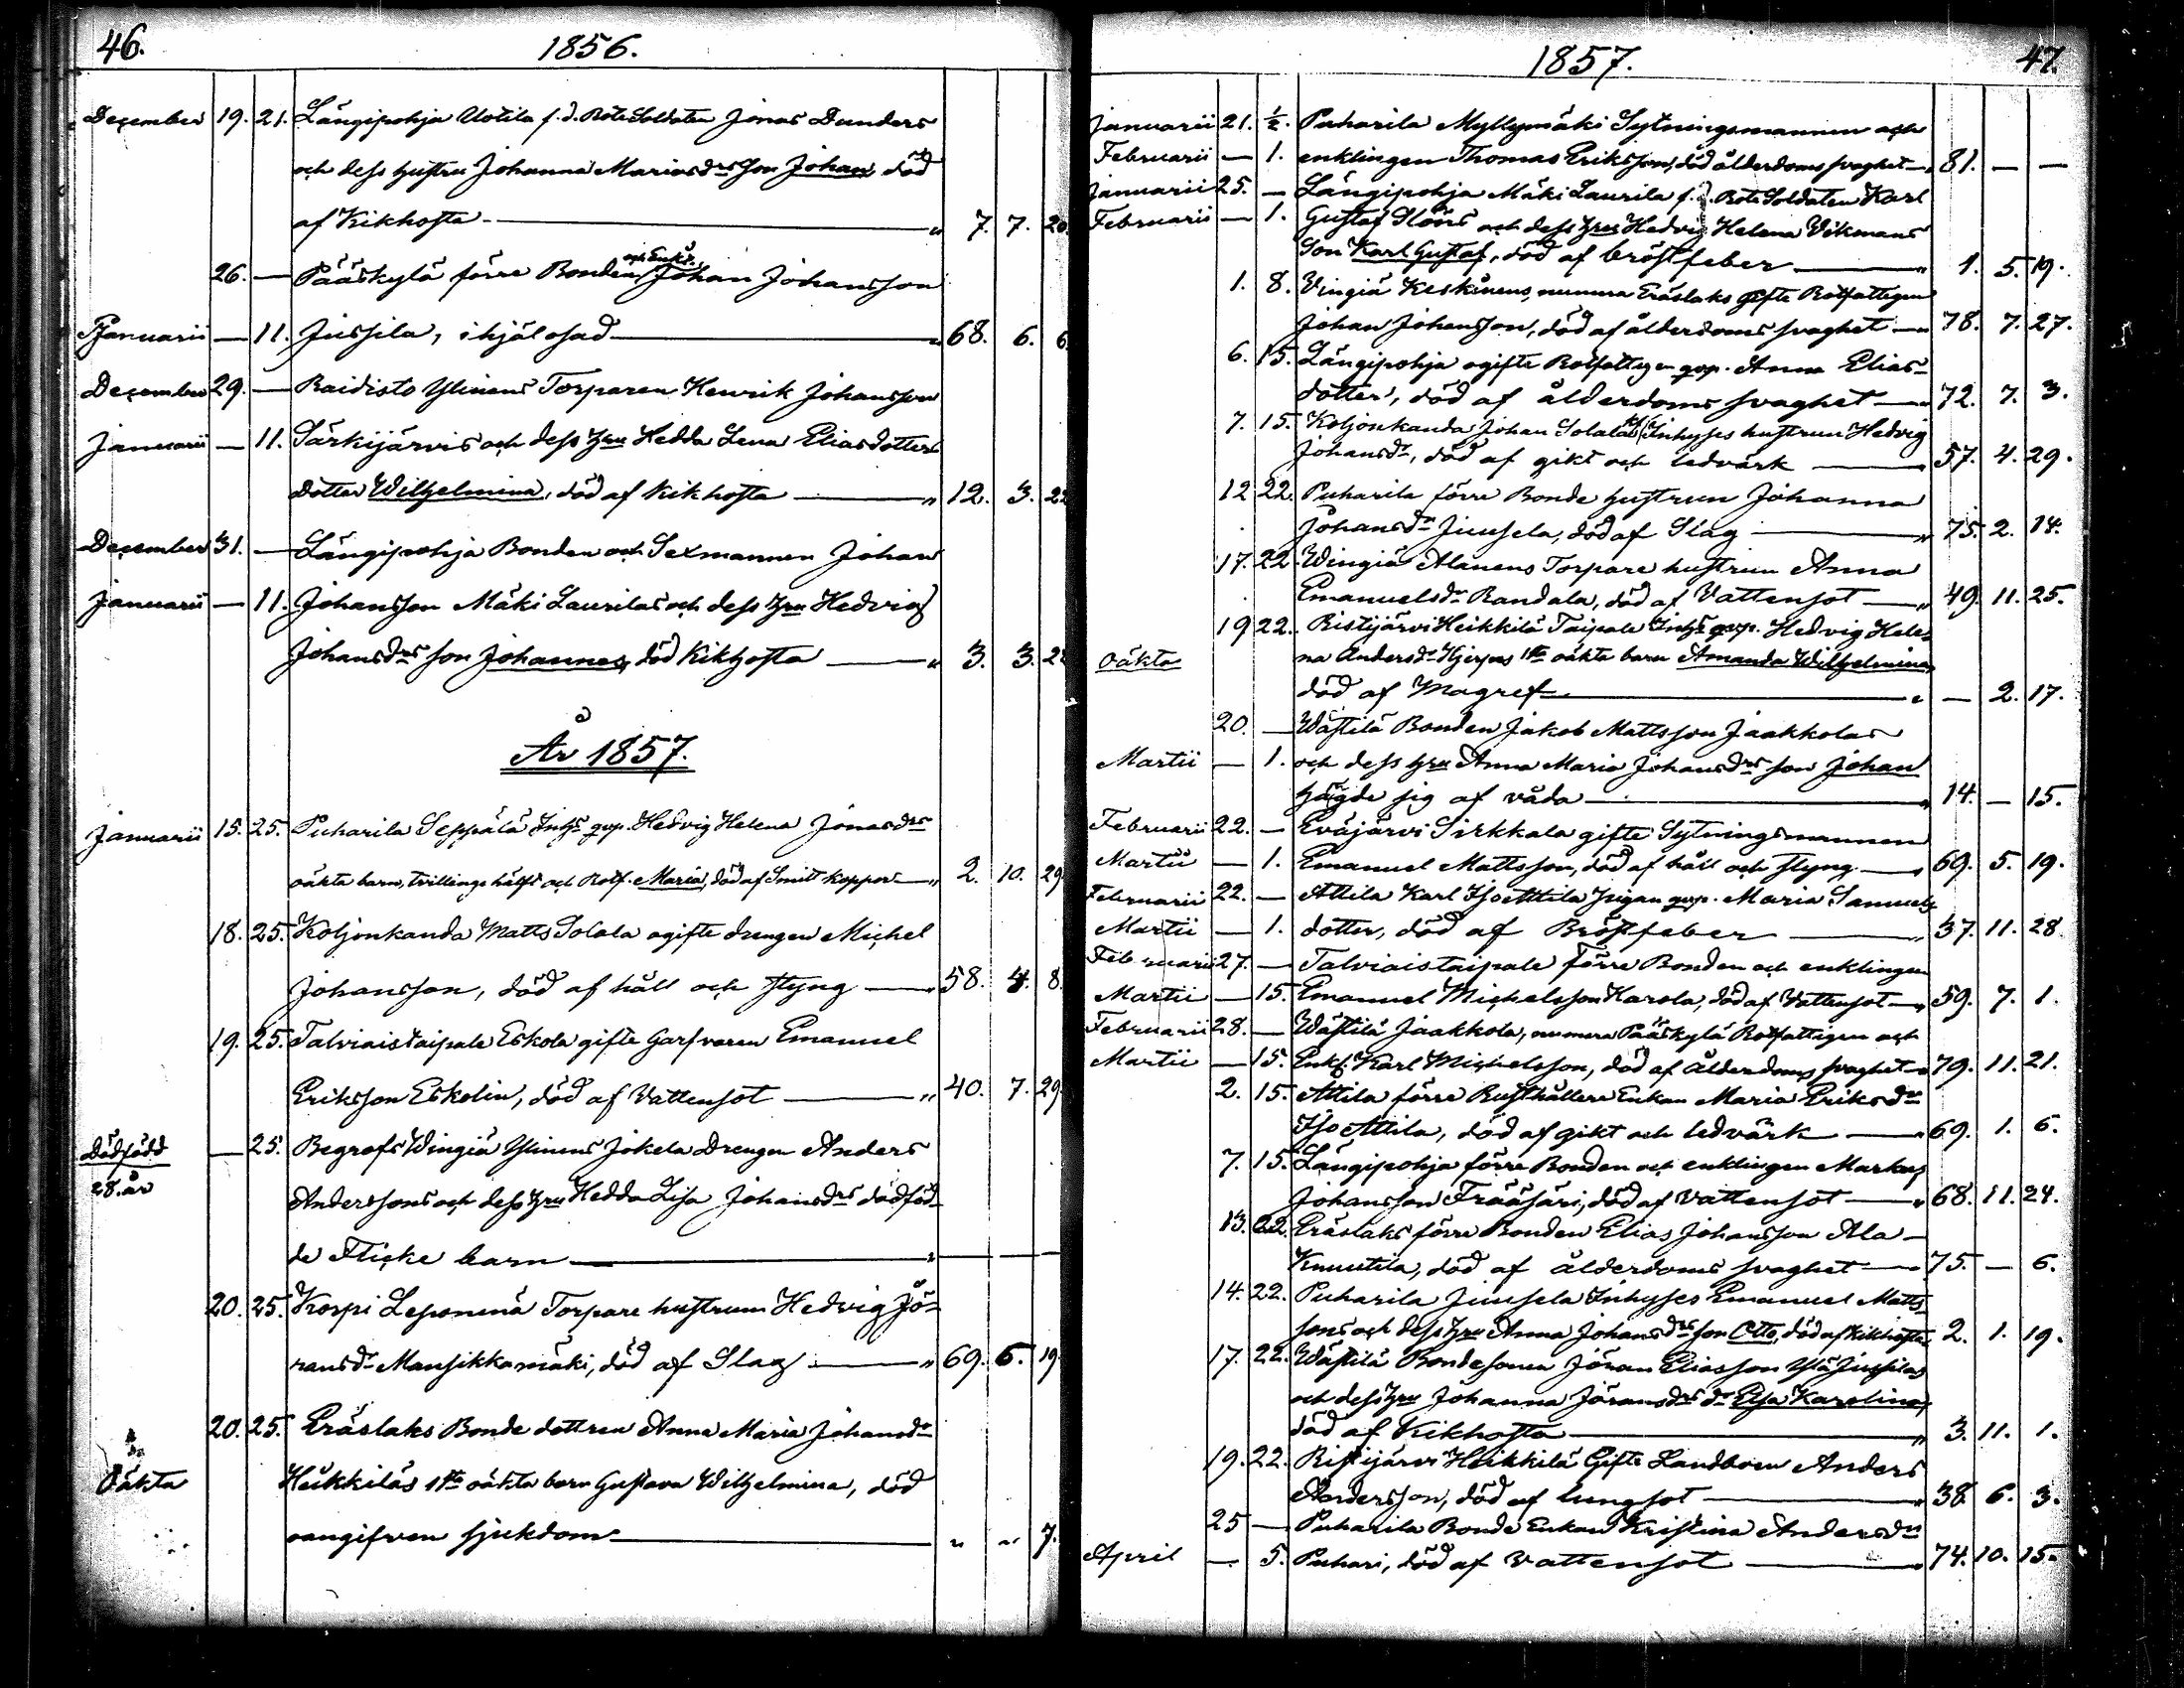 46. 1856.
December 19. 21. Längipohja Uotila f.d. Rote Soldaten Jonas Dunders
och dess hustru Johanna Mariasdrs Son Johan, död
af Kikhosta — " 7. 7. 20.
26. — Pääskylä förre Bonden och Enkl. Johan Johansson
Januarii — 11. Jussila, ihjälosad — " 68. 6. 6.
December 29. — Raidisto Ylinens Torparen Henrik Johansson
Januarii — 11. Särkijärvis och dess hru Hedda Lena Eliasdotters
dotter Wilhelmina, död af Kikhosta — " 12. 3. 22
December 31. — Längipohja Bonden och Sexmannen Johan
Januarii — 11. Johansson Mäki Laurilas och dess hru Hedvig
Johansdrs son Johannes, död Kikhosta — " 3. 3. 22
År 1857.
Januarii 15. 25. Puharila Seppälä Inhs qvp. Hedvig Helena Jonasdrs
oäkta barn, tvillings hälft och Rotf. Maria, död af Smitt koppor — " 2. 10. 29
18. 25. Koljonkanda Matts Solala ogifte drengen Michel
Johansson, död af håll och styng — " 58. 4. 8.
19. 25. Talviaistaipale Eskola gifte Garfvaren Emanuel
Eriksson Eskolin, död af Vattensot — " 40. 7. 29
Dödfödd — 25. Begrofs Wingiä Ylinens Jokela Drengen Anders
28. år Anderssons och dess hru Hedda Lisa Johansdrs dödföd-
de Flicke barn — " — —
20. 25. Korpi Leponenä Torpare hustrun Hedvig Jö-
ransdr Mansikkamäki, död af Slag — " 69. 6. 19
20. 25. Eräslaks Bonde dottren Anna Maria Johansdr
Oäkta Heikkiläs 1sta oäkta barn Gustava Wilhelmina, död
oangifven sjukdom — " " 7.
1857. 47.
Januarii 21. ½. Puharila Myllymäki Sytningsmannen och
Februarii — 1. enklingen Thomas Eriksson, död ålderdoms svaghet — " 81. — —
Januarii 25. — Längipohja Mäki Laurila f.d. Rote Soldaten Karl
Februarii — 1. Gustaf Slöörs och dess hrus Hedvig Helena Vikmans
Son Karl Gustaf, död af bröstfeber — " 1. 5. 19.
1. 8. Vingiä Keskinens, numera Eräslaks gifte Rotfattigen
Johan Johansson, död af ålderdoms svaghet — " 78. 7. 27.
6. 15. Längipohja ogifte Rotfattigen qvp. Anna Elias-
dotter, död af ålderdoms svaghet — " 72. 7. 3.
7. 15. Koljonkanda Johan Solala Inhyses hustrun Hedvig
Johansdr, död af gikt och ledvärk — " 57. 4. 29.
12 22. Puharila förre Bonde hustrun Johanna
Johansdr Juusela, död af Slag — " 75. 2. 14.
17. 22. Wingiä Alanens Torpare hustrun Anna
Emanuelsdr Randala, död af Vattensot — " 49. 11. 25.
19 22. Ristijärvi Heikkilä Taipale Inhs qvp. Hedvig Hele-
oäkta na Andersdr Hjerpes 1sta oäkta barn Amanda Wilhelmina,
död af Magref — " — 2. 17.
20. — Wästilä Bonden Jakob Mattsson Jaakkolas
Martii — 1. och dess hru Anna Maria Johansdrs son Johan
hägde sig af våda — " 14. — 15.
Februarii 22. — Eväjärvi Sirkkala gifte Sytningsmannen
Martii — 1. Emanuel Mattsson, död af håll och styng — " 69. 5. 19.
Februarii 22. — Attila Karl Iso Attila Pigan qvp. Maria Samuels
Martii — 1. dotter, död af Bröstfeber — " 37. 11. 28.
Februarii 27. — Talviaistaipale Förre Bonden och enklingen
Martii — 15. Emanuel Michelsson Karola, död af Vattensot — " 59. 7. 1.
Februarii 28. — Wästilä Jaakkola, numera Pääskylä Rotfattigen och
Martii — 15. Enkl. Karl Michelsson, död af Ålderdoms svaghet — " 79. 11. 21.
2. 15. Attila förre Rusthållare Enkan Maria Eriksdr
Iso Attila, död af gikt och ledvärk — " 69. 1. 6.
7. 15. Längipohja förre Bonden och enklingen Markus
Johansson Frääsäri, död af Vattensot — " 68. 11. 24.
13. 22. Eräslaks förre Bonden Elias Johansson Ala-
Knuutila, död af ålderdoms svaghet — " 75. — 6.
14. 22. Puharila Juusela Inhyses Emanuel Matts-
sons och dess hru Anna Johansdrs son Otto, död af Kikhosta 2. 1. 19.
17. 22. Wästilä Bondesonen Jöran Eliasson Ylä Jussilas
och dess hru Johanna Jöransdrs dr Elsa Karolina,
död af Kikhosta — " 3. 11. 1.
19. 22. Ristijärvi Heikkilä Gifte Landboen Anders
Andersson, död af lungsot — " 38 6. 3.
25 — Puharila Bonde Enkan Kristina Andersdr
April — 5. Puhari, död af Vattensot — " 74. 10. 15.